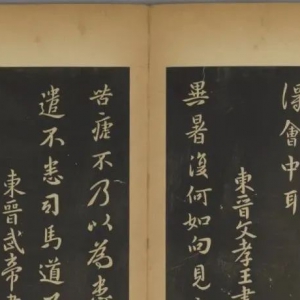 得會中耳
東晉文孝王書
異暑復何如向見
苦瘧不乃以為患
遣不悉司馬道
東晉武帝